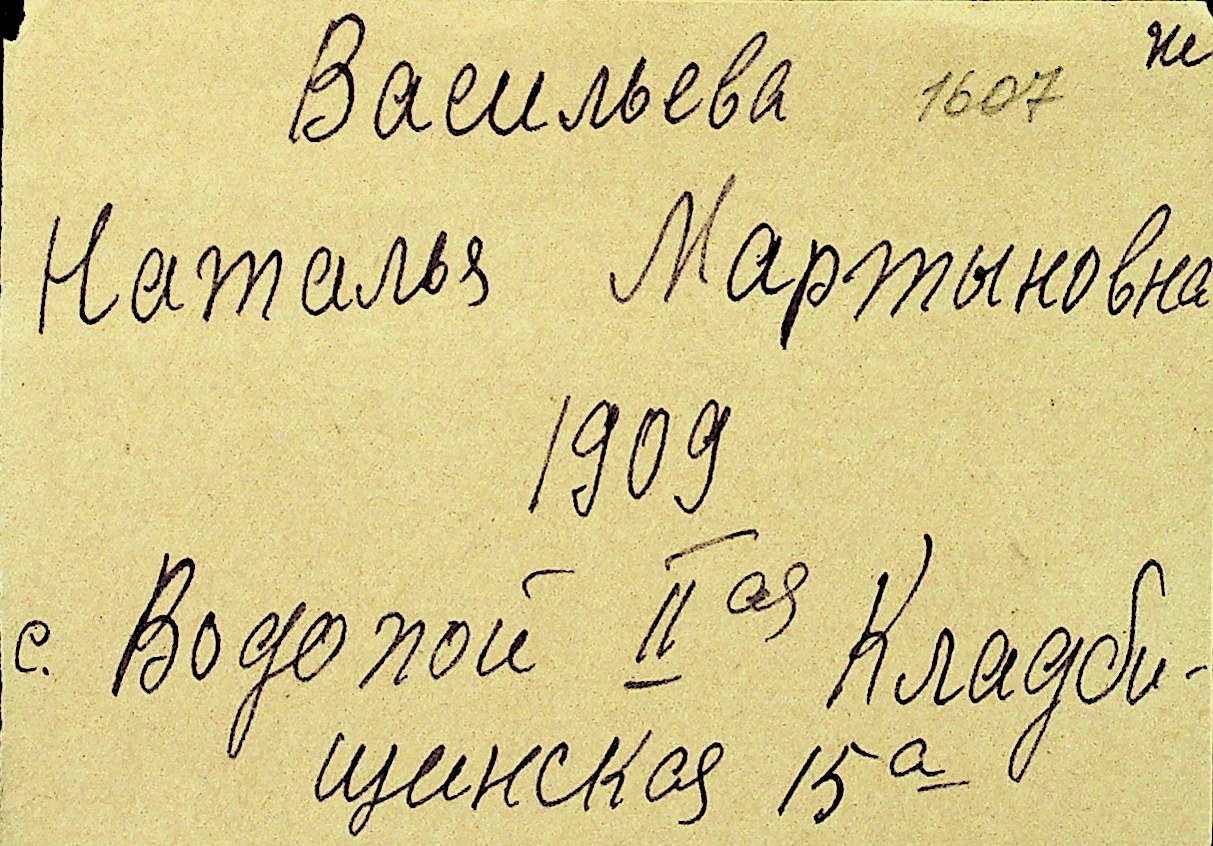 Васильева 1607 н
Наталья Мартыновна
1909
с. Водопой II ая Кладби-
щинская 15 а